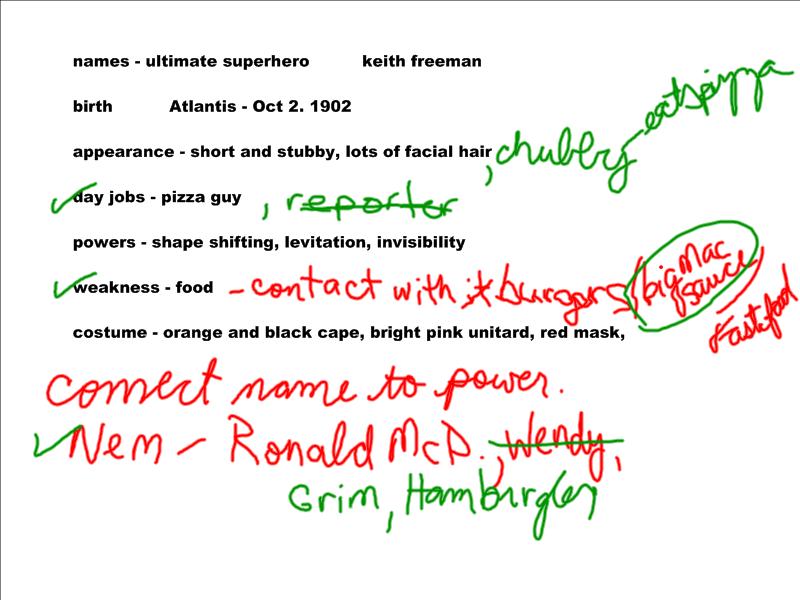 names - ultimate superhero keith freeman
birth Atlantis - Oct 2. 1902
appearance - short and stubby, lots of facial hair, chubby - eats pizza
day jobs - pizza guy, reporter
powers - shape shifting, levitation, invisibility
weakness - food - contact with it burgers, big Mac sauce
fast food
costume - orange and black cape, bright pink unitard, red mask,
connect name to power.
Nem - Ronald McD., Wendy,
Grim, Hamburgler